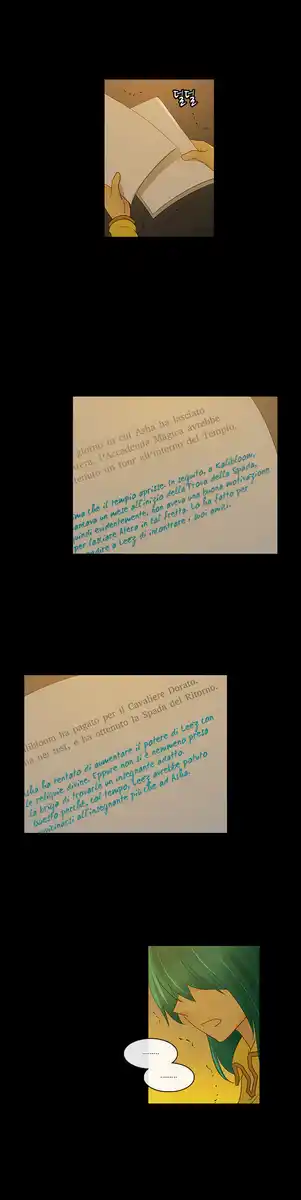 덜덜
giorno in cui Asha ha lasciato
Atera, l'Accademia Magica avrebbe
tenuto un tour all'interno del Tempio.
prima che il tempio aprisse. In seguito, a Kalibloom,
mancava un mese all'inizio della Prova della Spada,
quindi evidentemente, non aveva una buona motivazione
per lasciare Atera in tal fretta. Lo ha fatto per
impedire a Leez di incontrare i suoi amici.
Kalibloom ha pagato per il Cavaliere Dorato,
nei test, e ha ottenuto la Spada del Ritorno.
Asha ha tentato di aumentare il potere di Leez con
le reliquie divine. Eppure non si è nemmeno presa
la briga di trovarle un insegnante adatto.
Questo perché, col tempo, Leez avrebbe potuto
affezionarsi all'insegnante più che ad Asha.
........
........